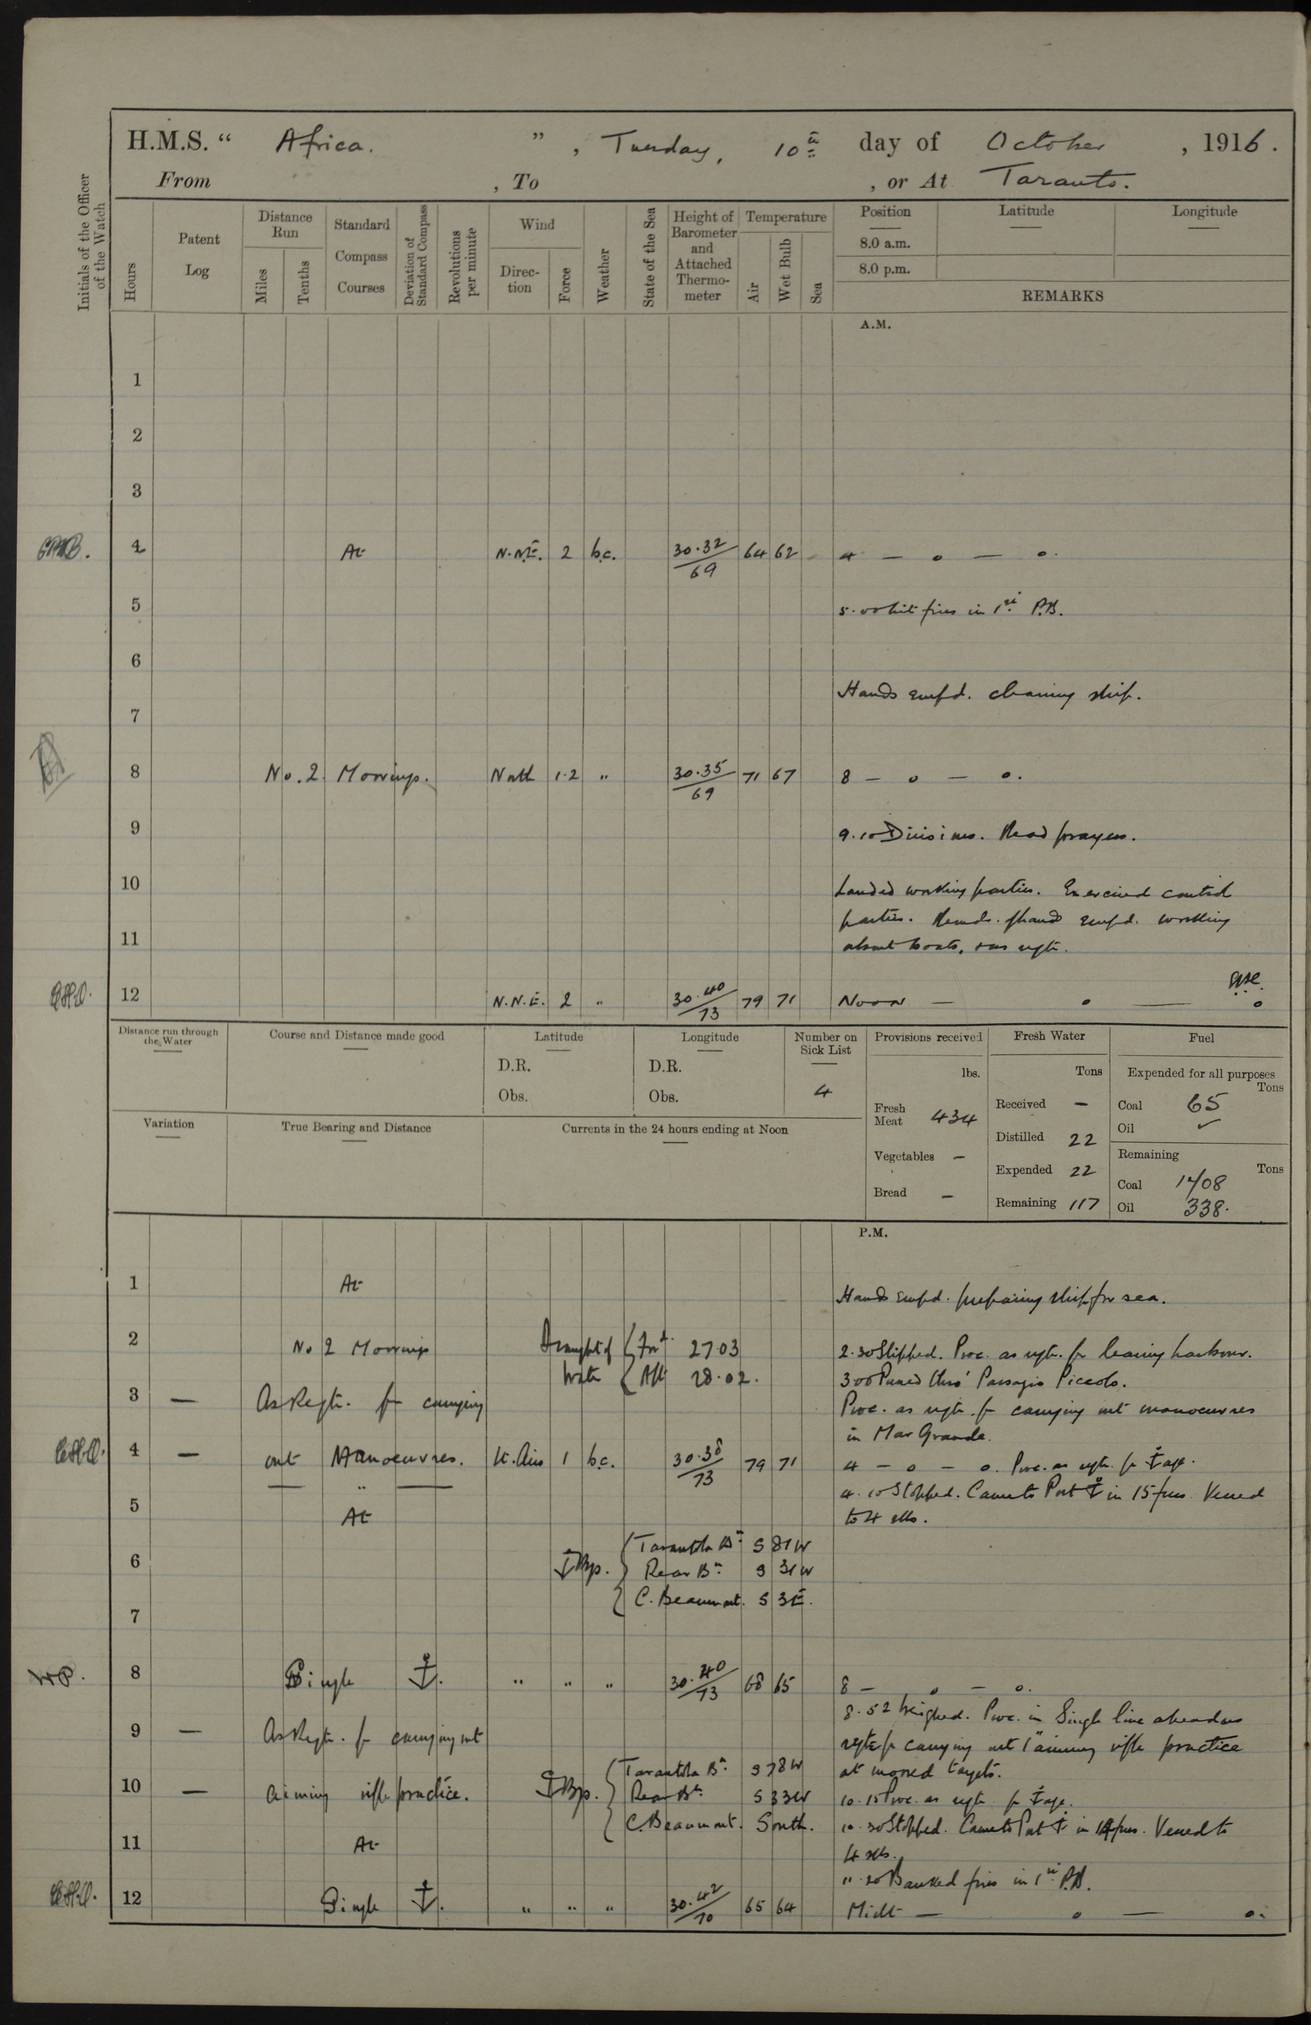 H.M.S. " Africa. ", Tuesday, 10th day of October, 1916.
From , To , or At Taranto.
Initials of the Officer of the Watch
Hours
Patent Log
Distance Run
Miles
Tenths
Standard Compass Courses
Deviation of Standard Compass
Revolutions per minute
Wind
Direction
Force
Weather
State of the Sea
Height of Barometer and Attached Thermometer
Temperature
Air
Wet Bulb
Sea
Position
Latitude
Longitude
8.0 a.m.
8.0 p.m.
REMARKS
A.M.
1
2
3
4 At N.N.E. 2 b.c. 30.32/69 64 62 4 — o — o.
5 5.00 Lit fires in 1st P.B.
6
Hands empd. cleaning ship.
7
8 No. 2 Moorings. North 1.2 " 30.35/69 71 67 8 — o — o.
9 9.10 Divisions. Read prayers.
10 Landed working parties. Exercised control
parties. Remdr. of hands empd. working
11 about boats, & as reqte.
12 N.N.E. 2 " 30.40/73 79 71 Noon — o — o
Distance run through the Water
Course and Distance made good
Latitude
D.R.
Obs.
Longitude
D.R.
Obs.
Number on Sick List
4
Provisions received
lbs.
Fresh Meat 434
Vegetables —
Bread —
Fresh Water
Tons
Received —
Distilled 22
Expended 22
Remaining 117
Fuel
Expended for all purposes
Tons
Coal 65
Oil ✓
Remaining
Tons
Coal 1408
Oil 338.
Variation
True Bearing and Distance
Currents in the 24 hours ending at Noon
P.M.
1 At Hands empd. preparing ship for sea.
2 No 2 Moorings Draught of Water { Ford. 27.03 2.30 Slipped. Proc. as reqte. for leaving harbour.
{ Aft 28.02. 3.00 Passed thro' Passagio Piccolo.
3 — As Reqte. for carrying Proc. as reqte. for carrying out manoeuvres
in Mar Grande.
4 — out Manoeuvres. Lt. Airs 1 b.c. 30.38/73 79 71 4 — o — o. Proc. as reqte. for ⚓age.
— " — 4.10 Stopped. Came to Port ⚓ in 15 fms. Veered
5 At to 4 slls.
6 ⚓ Bgs. { Tarantola Bn. S 81 W
Rear Bn. S 31 W
C. Beaumont. S 3 E.
7
8 Single ⚓. " " " 30.40/73 68 65 8 — o — o.
8.52 Weighed. Proc. in Single line ahead as
9 — As Reqte. for carrying out reqte for carrying out 1" aiming rifle practice
⚓ Bgs. { Tarantola Bn. S 78 W at moored targets.
10 — aiming rifle practice. Rear Bn. S 33 W 10.15 Proc. as reqte. for ⚓age.
C. Beaumont. South. 10.30 Stopped. Came to Port ⚓ in 14 fms. Veered to
11 At 4 slls.
11.20 Banked fires in 1st P.B.
12 Single ⚓. " " " 30.42/70 65 64 Midt — o — o.